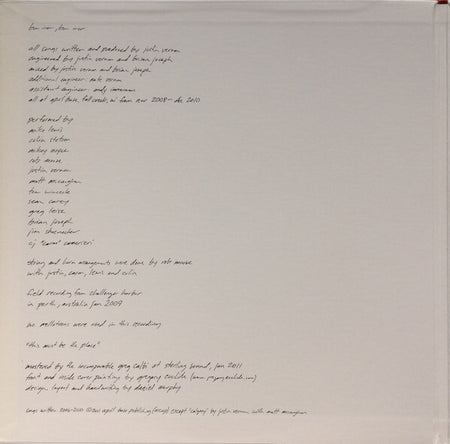 bon iver, bon iver
all songs written and produced by justin vernon
engineered by justin vernon and brian joseph
mixed by justin vernon and brian joseph
additional engineer nate vernon
assistant engineer andy
all at april base, fall creek, wi from nov 2008 - dec 2010
performed by
mike lewis
colin stetson
mikey noyce
rob moose
justin vernon
matt mccaughan
tom wincek
sean carey
greg leisz
brian joseph
jim schoenecker
cj "carm" camerieri
string and horn arrangements were done by rob moose
with justin, carm, lewis and colin
field recording from challenger harbor
in perth, australia jan 2009
no mellotrons were used in this recording
"this must be the place"
mastered by the incomparable greg calbi at sterling sound, jan 2011
front and inside cover painting by gregory euclide
design, layout and handwriting by daniel murphy
songs written 2011 april base publishing (ascap) except "calgary" by justin vernon matt mccaughan